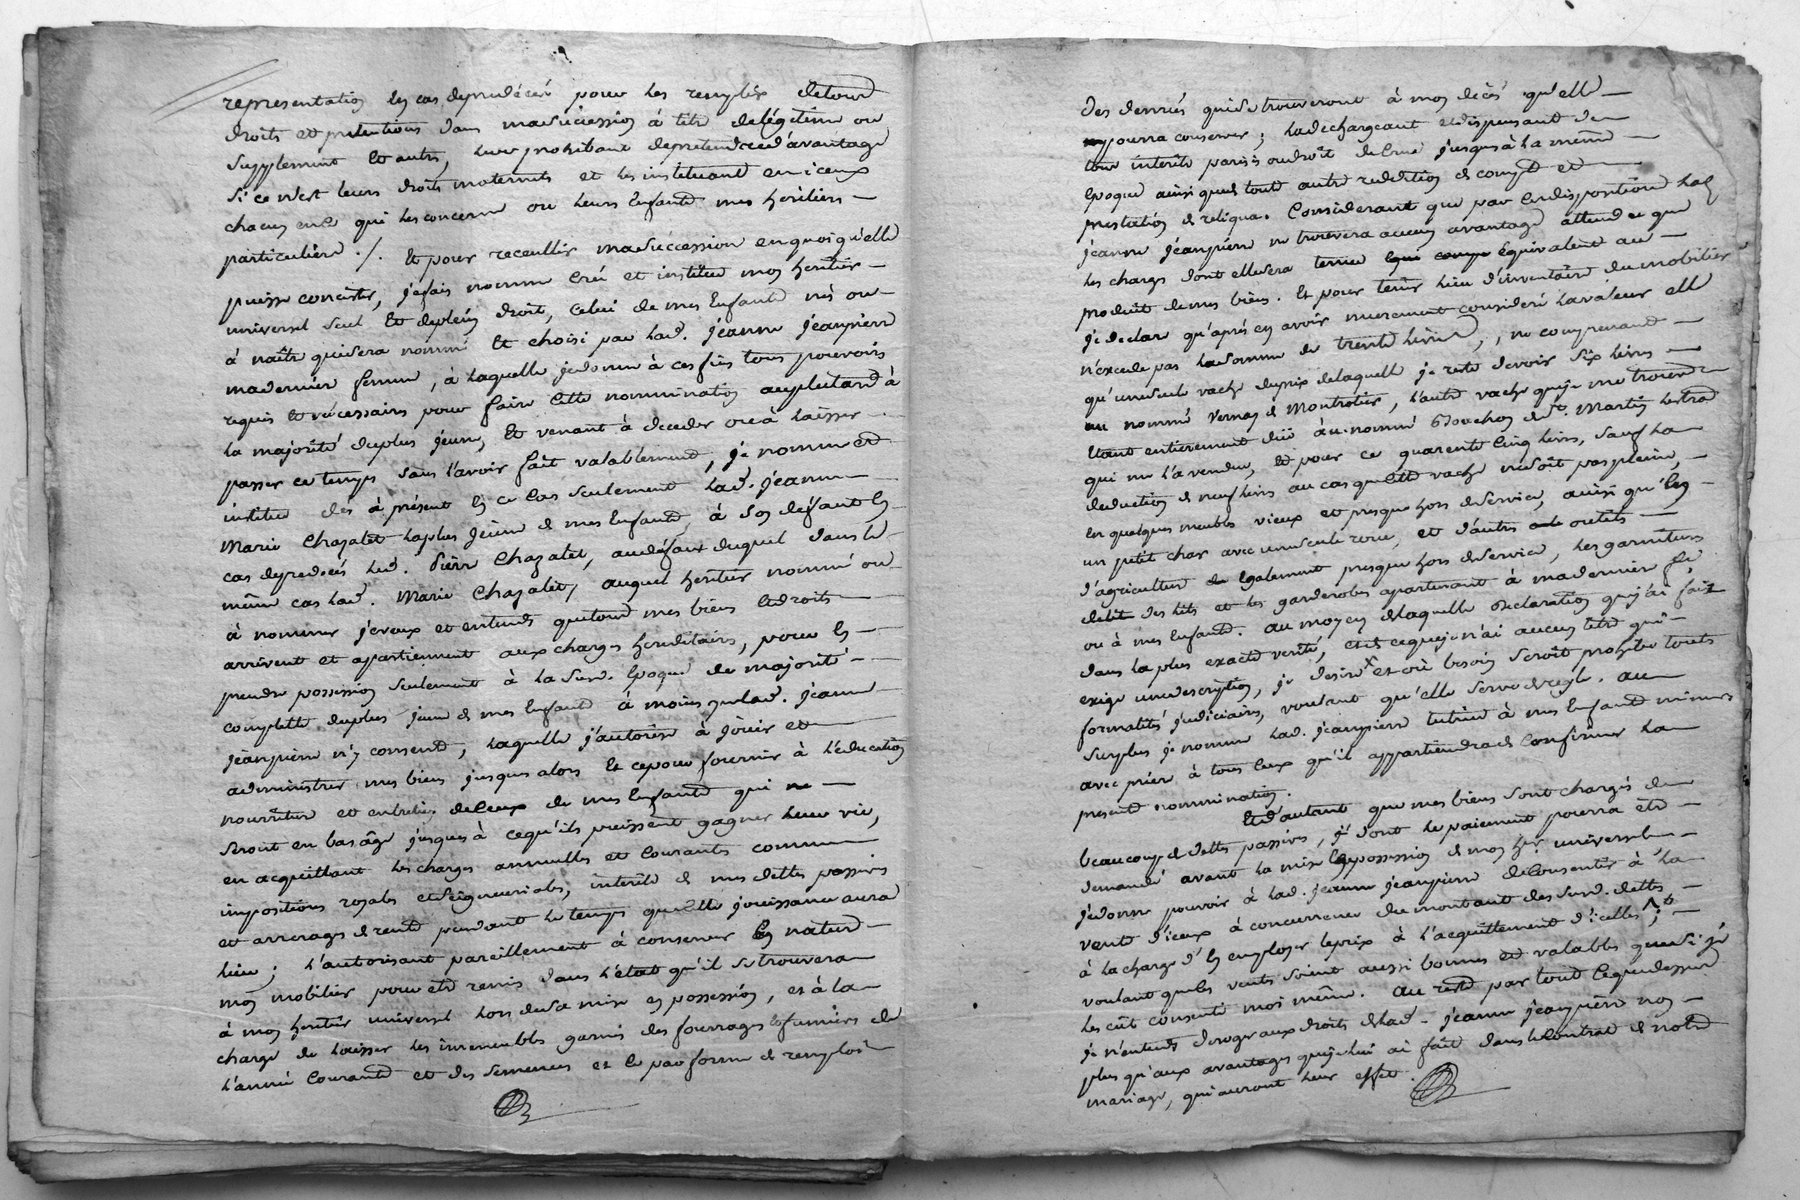 representation en cas de predécés pour les remplir de tous
droits et pretentions dans ma succession à titre de légitime ou
supplement et autre, leur prohibant de pretendre d'avantage
si ce n'est leurs droits maternels et les instituant en iceux
chacun en ce qui les concerne ou leurs Enfants mes héritiers
particuliers ./. Et pour receullir ma succession en quoi qu'elle
puisse concister, je fais nomme Créé et institue mon héritier
universel seul Et de plein droit, celui de mes Enfants nés ou
à naître qui sera nommé Et choisi par lad. jeanne jeanpierre
ma dernière femme, à laquelle je donne à ces fins tous pouvoirs
requis et nécessaires pour faire cette nomination au plus tard à
la majorité du plus jeune, Et venant à deceder ou à laisser
passer ce temps sans l'avoir fait valablement, je nomme et
institue dès à présent en ce Cas seulement lad. jeanne
Marie Chazalet la plus jeune de mes Enfants, à son défaut en
cas de predécés led. Pierre Chazalet, au défaut duquel dans le
même cas lad. Marie Chazalet, auquel héritier nommé ou
à nommer je veux et entends que tous mes biens et droits
arrivent et appartiennent aux charges héréditaires, pour en
prendre possession seulement à la susd. Epoque de majorité
complette du plus jeune de mes Enfants à moins que lad. jeanne
jeanpierre n'y consente, laquelle j'autorise à jouir et
administrer mes biens jusques alors Et ce pour fournir à l'éducation
nourriture et entretien de ceux de mes Enfants qui
seront en bas âge jusques à ce qu'ils puissent gagner leur vie,
en acquittant les charges annuelles et Courantes comme
impositions royales et Seigneuriales, intérêts de mes dettes passives
et arrerages de rente pendant le temps que cette jouissance aura
lieu ; l'autorisant pareillement à conserver En nature
mon mobilier pour être remis dans l'état qu'il se trouvera
à mon héritier universel lors de sa mise en possession, et à la
charge de laisser les immeubles garnis des fourrages et fumiers de
l'année Courante et des semences et ce par forme de remploi
des denrées qui se trouveront à mon décès qu'elle
pourra conserver ; la dechargeant et dispensant de
tous intérêts parisis ou droit de Crue jusques à la même
Epoque ainsi que de toute autre reddition de compte et
prestation de reliqua. Considerant que par Ces dispositions lad.
jeanne jeanpierre ne trouvera aucun avantage attendu que
les charges dont elle sera tenue Equivalent au
produit de mes biens. Et pour tenir lieu d'inventaire du mobilier
je declare qu'après en avoir murement consideré la valeur elle
n'excede pas la somme de trente livres, ne comprenant
qu'une seule vache du prix de laquelle je reste devoir six livres
au nommé Vernay de Montrotier, l'autre vache que je me trouve
Etant entierement düe au nommé Bouchon de St. Martin Lestrad
qui me l'a vendue, et pour ce quarante Cinq livres, sauf la
deduction de neuf livres au cas que cette vache ne soit pas pleine,
en quelques meubles vieux et presque hors de Service, ainsi qu'en
un petit char avec une seule roue, et d'autres outils
d'agriculture egalement presque hors de Service, les garnitures
des lits et les garderobes apartenant à ma dernière fe
ou à mes Enfants. au moyen de laquelle declaration que j'ai fait
dans la plus exacte verité, et de ce que je n'ai aucun titre qui
exige une description, je desire et où besoin seroit prohibe toutes
formalités judiciaires, voulant qu'elle serve de regle. au
surplus je nomme lad. jeanpierre tutrice à mes Enfants mineurs
avec prière à tous Ceux qu'il appartiendra de Confirmer la
presente nomination.
Et d'autant que mes biens sont chargés de
beaucoup de dettes passives, dont le paiement pourra être
demandé avant la mise en possession de mon her. universel
je donne pouvoir à lad. jeanne jeanpierre de Consentir à la
vente d'iceux à concurrence du montant des susd. dettes,
à la charge d'En employer le prix à l'acquittement d'icelles ;
voulant que les ventes soient aussi bonnes et valables que si je
les eût consenti moi même. au reste par tout ce que dessus
je n'entends deroger aux droits de lad. jeanne jeanpierre non
plus qu'aux avantages que je lui ai fait dans le Contrat de notre
mariage, qui auront leur effet.